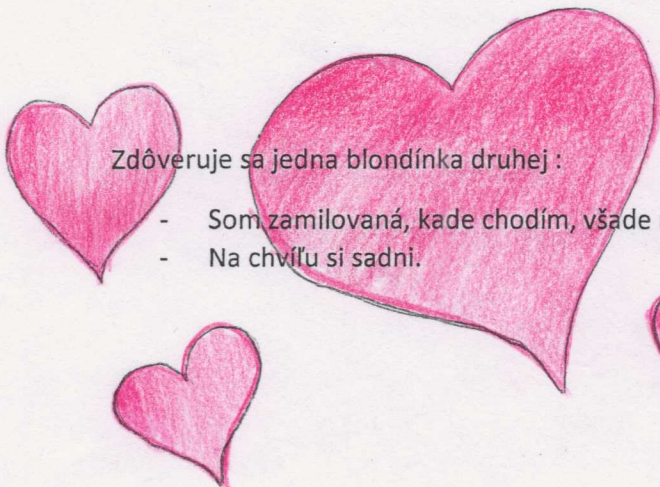 Zdôveruje sa jedna blondínka druhej :
- Som zamilovaná, kade chodím, všade
- Na chvíľu si sadni.